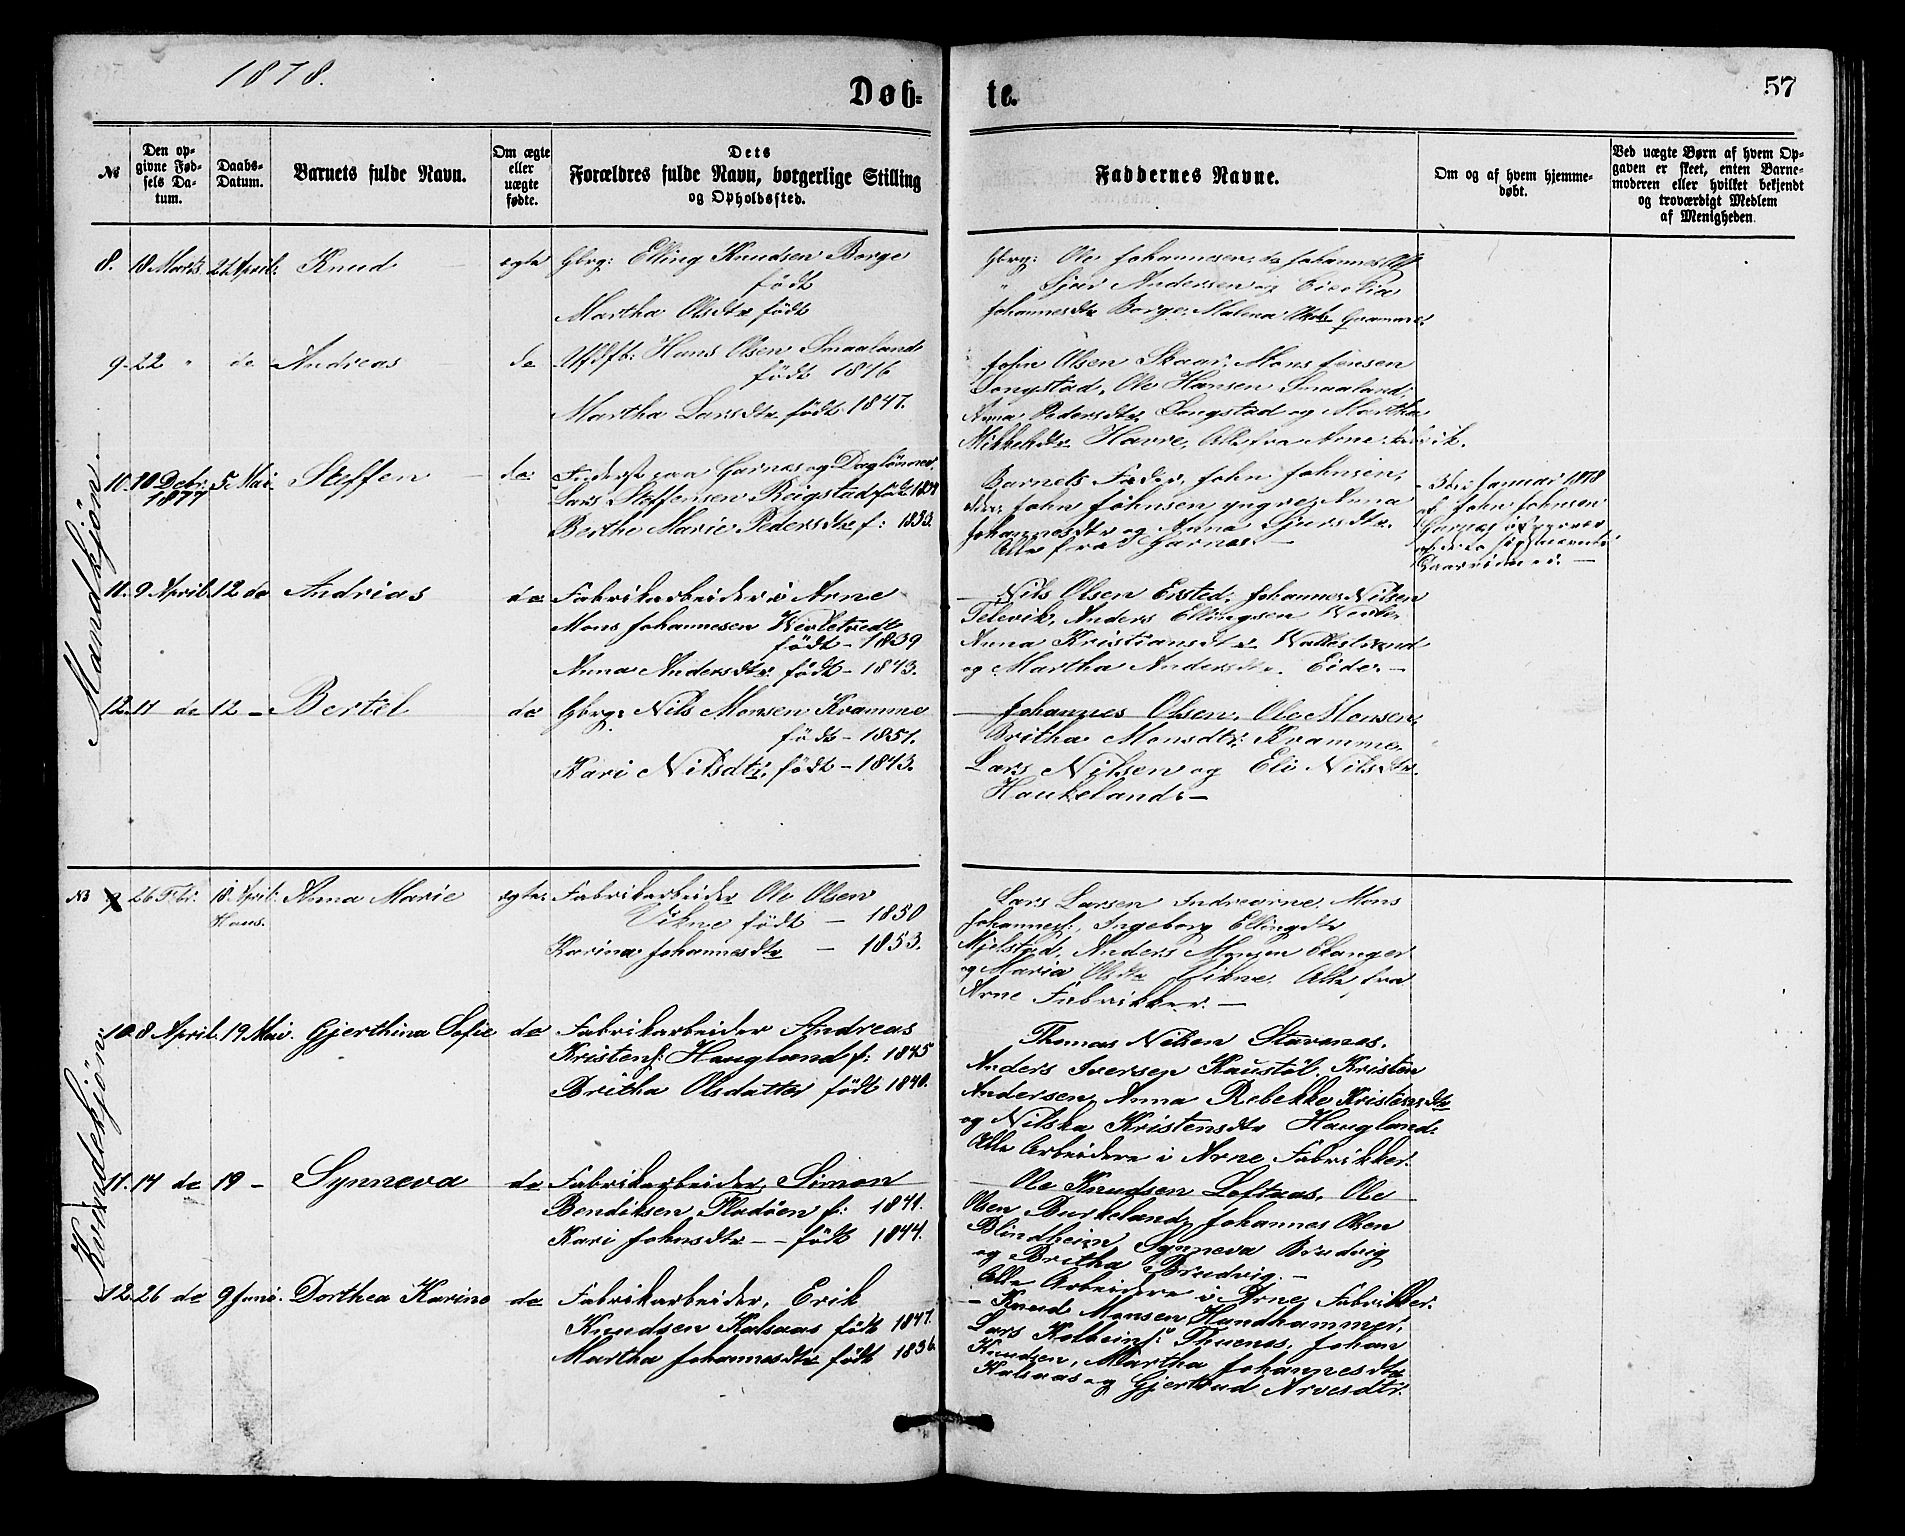 1878.
Døb-
te.
57
№
Den op-
givne Fød-
sels Da-
tum.
Daabs-
Datum.
Barnets fulde Navn.
Om ægte
eller
uægte
fødte.
Dets
Forældres fulde Navn, borgerlige Stilling
og Opholdssted.
Faddernes Navne.
Om og af hvem hjemme-
døbt.
Ved uægte Børn af hvem Op-
gaven er skeet, enten Barne-
moderen eller hvilket bekjendt
og troværdigt Medlem
af Menigheden.
Mandkjøn
8. 18 Marts 21 April: Knud egte Gbrg: Elling Knudsen Borge
født
Martha Olsdtr født
Gbrg: Ole Johannesen, Johannes
Andersen og
Johannesdtr Borge, Malena
9. 22 " do Andreas do Hans Olsen Smaaland
født 1846
Martha Larsdtr født 1847.
John Olsen Skaar, Mons Jensen
Songstad, Ole Hansen Smaaland,
Anna Pedersdtr Songstad og Martha
Mikkelsdtr Havre, Alle fra Arne
10. 10 Debr. 1877 5. Mai. Steffen do Garnes og Daglønner
Lars Steffensen Reigstad født
Berthe Marie Pedersdtr f: 1833.
Barnets Fader, John Johnsen,
John Johnsen yngre, Anna
Johannesdtr og Anna
Alle fra Garnes. —
3die Januar 1878
af John Johnsen
Garnes
11. 9 April 12 do Andreas do Fabrikarbeider i Arne
Mons Johannesen
født – 1839
Anna Andersdtr: født – 1843.
– Nils Olsen Johannes Nilsen
Televik, Anders Ellingsen
Anna Kristiansdtr
og Martha Andersdtr. Eide. –
12. 11 do 12 – Bertel do Gbrg: Nils Monsen Kramme
født – 1851.
Kari Nilsdtr. født – 1843.
– Johannes Olsen, Ole Monsen,
Britha Monsdtr: Kramme,
Lars Nilsen og Eli Nilsdtr.
Haukeland. –
Kvindekjøn
N3 9 26 Febr. 18. April: Anna Marie egte. Fabrikarbeider Ole Olsen
Haus.
Vikne født – 1850
Karina Johannesdtr – 1853.
Lars Larsen Indrearne, Mons
Johannesf:, Ingeborg Ellingsdtr
Mjelstad, Anders Monsen Ekanger
og Maria Olsdtr Vikne. Alle fra
Arne Fabrikker. —
10. 8 April. 19 Mai. Gjerthina Sofie do Fabrikarbeider Andreas
Kristenf: Haugland f: 1845
Britha Olsdatter født 1840.
Thomas Nilsen Stavenes,
Anders Iversen Kaustøl, Kristen
Andersen, Anna Rebekke Kristensdtr
og Nilska Kristensdtr Haugland.
Alle Arbeidere i Arne Fabrikker.
11. 14 do 19 – Synneva do Fabrikarbeider, Simon
Bendiksen Fladøen f: 1841.
Kari Johnsdtr – – født 1844.
– Ole Knudsen Loftaas, Ole
Olsen Burkeland, Johannes Olsen
Blindheim Synneva Brudvig
og Britha Brudvig. –
Alle Arbeidere i Arne Fabrikker.
12. 26 do 9 Juni. Dorthea Karine do Fabrikarbeider, Erik
Knudsen Kalsaas født 1847.
Martha Johannesdtr født 1836.
– Knud Monsen Hundhammer,
Lars Kolbeinf: Thuenes, Johan
Knudsen, Martha Johannesdtr
Kalsaas og Gjertrud Arvesdtr.